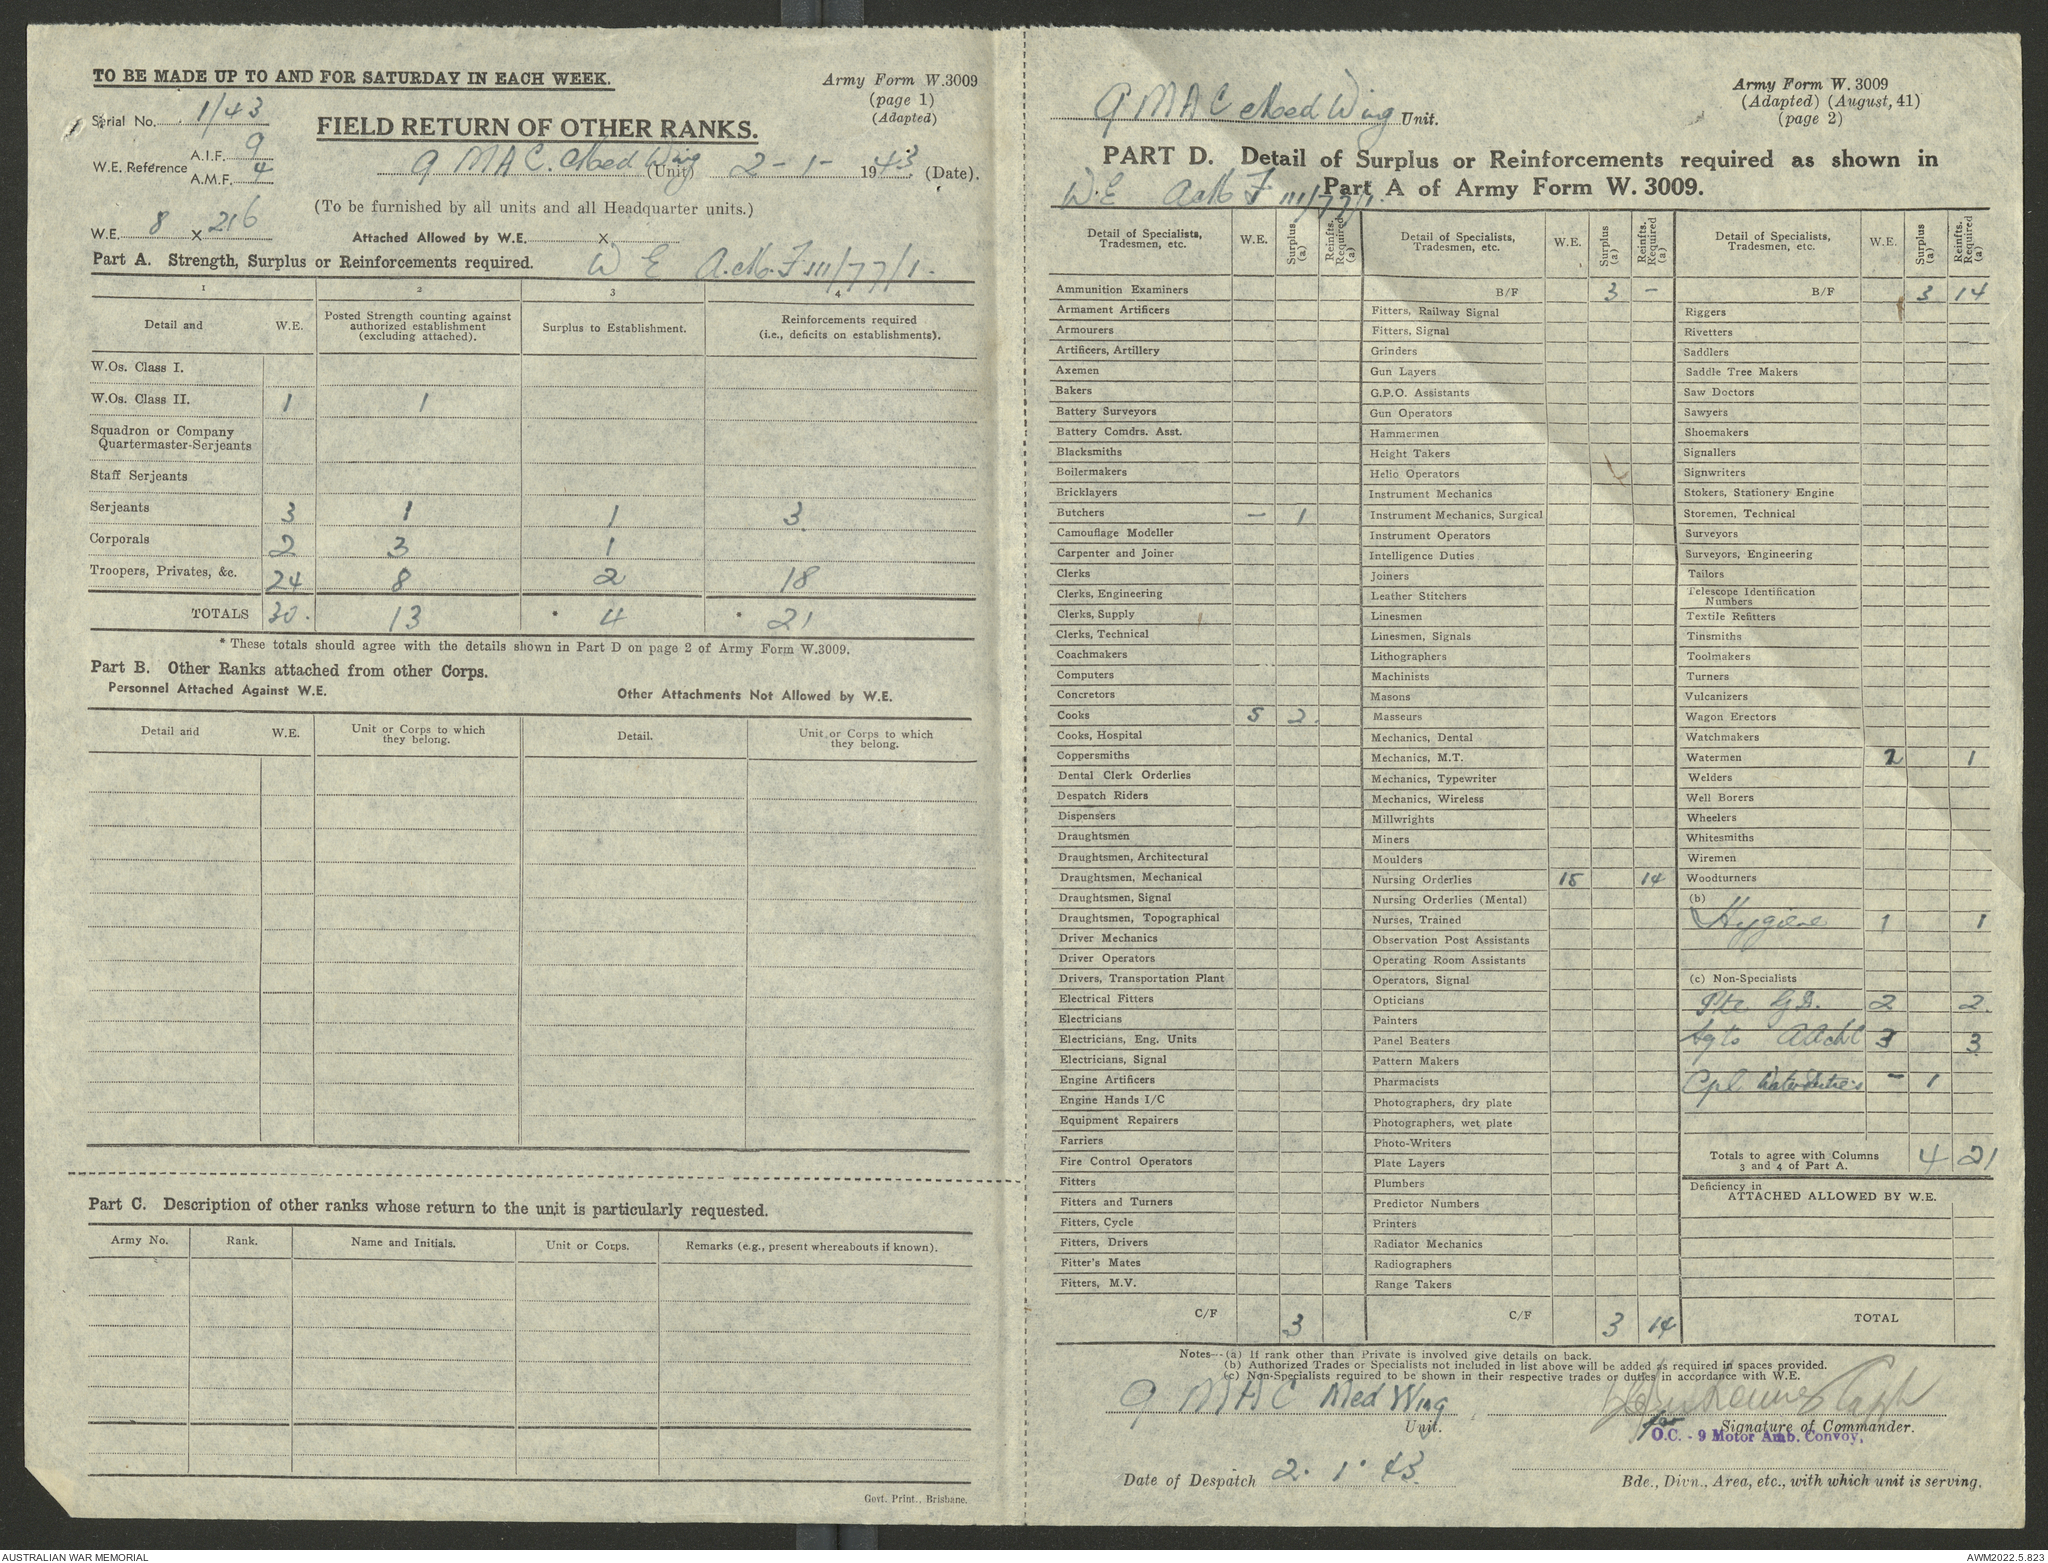 TO BE MADE UP TO AND FOR SATURDAY IN EACH WEEK.
Army Form W.3009
(page 1)
(Adapted)
Serial No. 1/43
FIELD RETURN OF OTHER RANKS.
W.E. Reference A.I.F. 9
A.M.F. 4
9 MAC. Med Wing (Unit) 2-1-1943. (Date).
(To be furnished by all units and all Headquarter units.)
W.E. 8 x 216
Attached Allowed by W.E. x
Part A. Strength, Surplus or Reinforcements required. W E A.M.F. III/77/1.
1 2 3 4
Detail and W.E. Posted Strength counting against authorized establishment (excluding attached). Surplus to Establishment. Reinforcements required (i.e., deficits on establishments).
W.Os. Class I.
W.Os. Class II. 1 1
Squadron or Company
Quartermaster-Serjeants
Staff Serjeants
Serjeants 3 1 1 3
Corporals 2 3 1
Troopers, Privates, &c. 24 8 2 18
TOTALS 30. 13 * 4 * 21
* These totals should agree with the details shown in Part D on page 2 of Army Form W.3009.
Part B. Other Ranks attached from other Corps.
Personnel Attached Against W.E. Other Attachments Not Allowed by W.E.
Detail and W.E. Unit or Corps to which they belong. Detail. Unit or Corps to which they belong.
Part C. Description of other ranks whose return to the unit is particularly requested.
Army No. Rank. Name and Initials. Unit or Corps. Remarks (e.g., present whereabouts if known).
Govt. Print., Brisbane.
9 MAC Med Wing Unit.
Army Form W. 3009
(Adapted) (August, 41)
(page 2)
PART D. Detail of Surplus or Reinforcements required as shown in
Part A of Army Form W. 3009.
W.E A.M.F III/77/1.
Detail of Specialists, Tradesmen, etc. W.E. Surplus (a) Reinfts. Required (a)
Ammunition Examiners
Armament Artificers
Armourers
Artificers, Artillery
Axemen
Bakers
Battery Surveyors
Battery Comdrs. Asst.
Blacksmiths
Boilermakers
Bricklayers
Butchers – 1
Camouflage Modeller
Carpenter and Joiner
Clerks
Clerks, Engineering
Clerks, Supply
Clerks, Technical
Coachmakers
Computers
Concretors
Cooks 5 2.
Cooks, Hospital
Coppersmiths
Dental Clerk Orderlies
Despatch Riders
Dispensers
Draughtsmen
Draughtsmen, Architectural
Draughtsmen, Mechanical
Draughtsmen, Signal
Draughtsmen, Topographical
Driver Mechanics
Driver Operators
Drivers, Transportation Plant
Electrical Fitters
Electricians
Electricians, Eng. Units
Electricians, Signal
Engine Artificers
Engine Hands I/C
Equipment Repairers
Farriers
Fire Control Operators
Fitters
Fitters and Turners
Fitters, Cycle
Fitters, Drivers
Fitter's Mates
Fitters, M.V.
C/F 3
Detail of Specialists, Tradesmen, etc. W.E. Surplus (a) Reinfts. Required (a)
B/F 3 –
Fitters, Railway Signal
Fitters, Signal
Grinders
Gun Layers
G.P.O. Assistants
Gun Operators
Hammermen
Height Takers
Helio Operators
Instrument Mechanics
Instrument Mechanics, Surgical
Instrument Operators
Intelligence Duties
Joiners
Leather Stitchers
Linesmen
Linesmen, Signals
Lithographers
Machinists
Masons
Masseurs
Mechanics, Dental
Mechanics, M.T.
Mechanics, Typewriter
Mechanics, Wireless
Millwrights
Miners
Moulders
Nursing Orderlies 15 14
Nursing Orderlies (Mental)
Nurses, Trained
Observation Post Assistants
Operating Room Assistants
Operators, Signal
Opticians
Painters
Panel Beaters
Pattern Makers
Pharmacists
Photographers, dry plate
Photographers, wet plate
Photo-Writers
Plate Layers
Plumbers
Predictor Numbers
Printers
Radiator Mechanics
Radiographers
Range Takers
C/F 3 14
Detail of Specialists, Tradesmen, etc. W.E. Surplus (a) Reinfts. Required (a)
B/F 3 14
Riggers
Rivetters
Saddlers
Saddle Tree Makers
Saw Doctors
Sawyers
Shoemakers
Signallers
Signwriters
Stokers, Stationery Engine
Storemen, Technical
Surveyors
Surveyors, Engineering
Tailors
Telescope Identification
Numbers
Textile Refitters
Tinsmiths
Toolmakers
Turners
Vulcanizers
Wagon Erectors
Watchmakers
Watermen 2 1
Welders
Well Borers
Wheelers
Whitesmiths
Wiremen
Woodturners
(b)
Hygiene 1 1
(c) Non-Specialists
Pte G.D. 2 2.
Sgts AAMC 3 3
Cpl Waterduties – 1
Totals to agree with Columns 3 and 4 of Part A. 4 21
Deficiency in
ATTACHED ALLOWED BY W.E.
TOTAL
Notes—(a) If rank other than Private is involved give details on back.
(b) Authorized Trades or Specialists not included in list above will be added as required in spaces provided.
(c) Non-Specialists required to be shown in their respective trades or duties in accordance with W.E.
9 MAC Med Wing
Unit.
Capt
for Signature of Commander.
O.C. - 9 Motor Amb. Convoy,
Date of Despatch 2. 1. 43.
Bde., Divn., Area, etc., with which unit is serving.
AUSTRALIAN WAR MEMORIAL
AWM2022.5.823